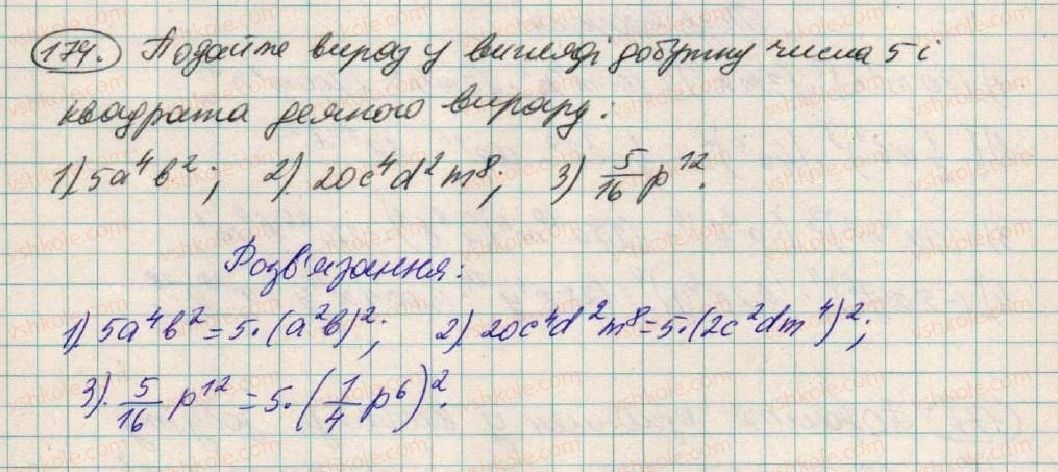 179. Подайте вираз у вигляді добутку числа 5 і
квадрата деякого виразу:
1) 5a⁴b²; 2) 20c⁴d²m⁸; 3) 5/16 p¹².
Розв'язання:
1) 5a⁴b² = 5·(a²b)²; 2) 20c⁴d²m⁸ = 5·(2c²dm⁴)²;
3) 5/16 p¹² = 5·(1/4 p⁶)².